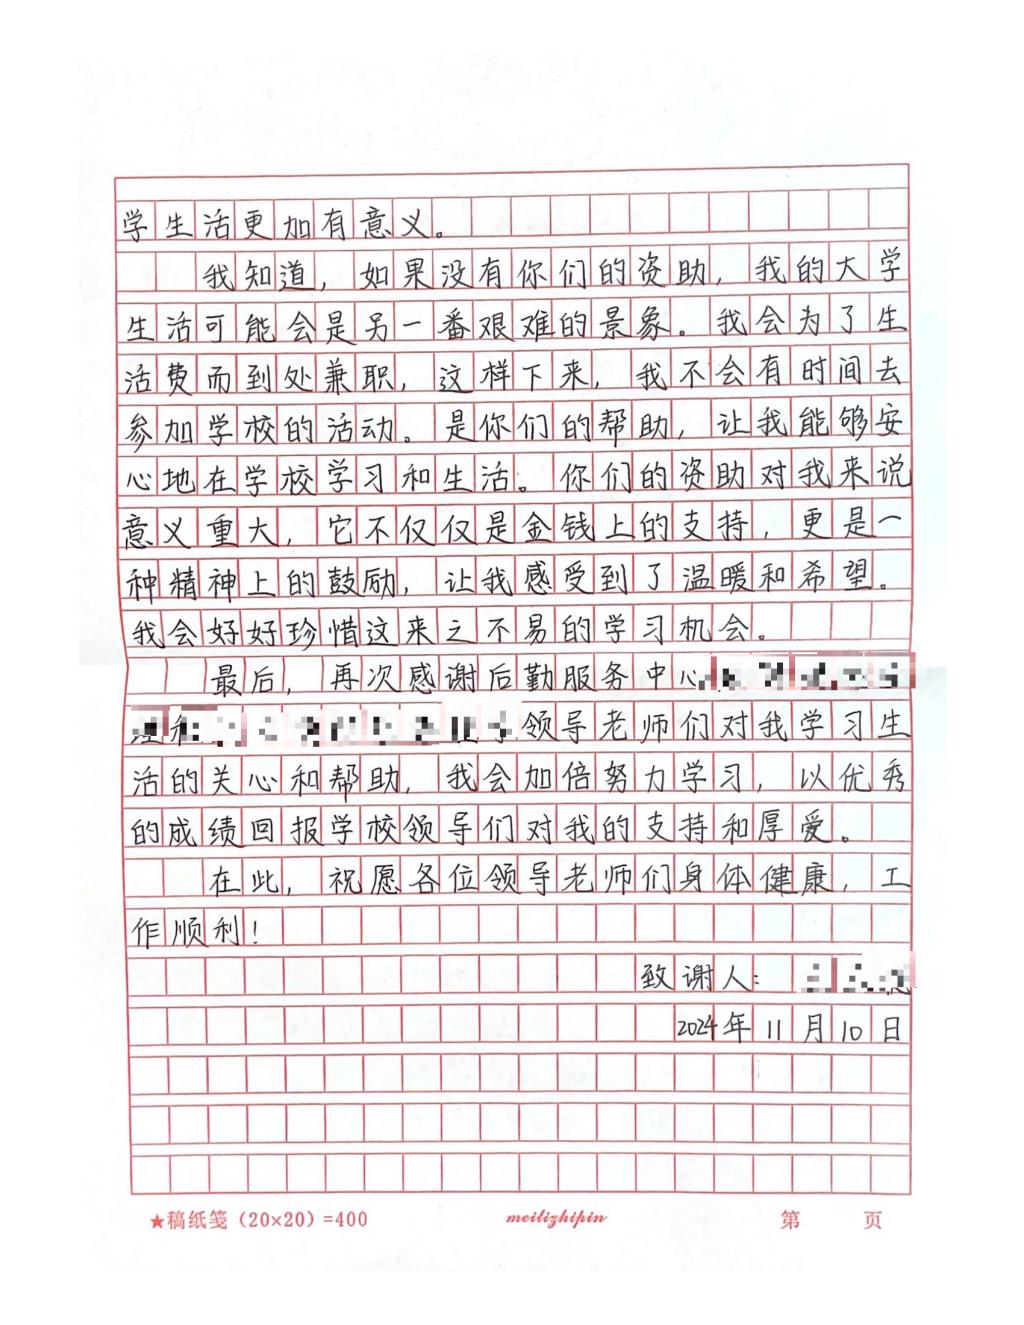 学生活更加有意义。
我知道，如果没有你们的资助，我的大学
生活可能会是另一番艰难的景象。我会为了生
活费而到处兼职，这样下来，我不会有时间去
参加学校的活动。是你们的帮助，让我能够安
心地在学校学习和生活。你们的资助对我来说
意义重大，它不仅仅是金钱上的支持，更是一
种精神上的鼓励，让我感受到了温暖和希望。
我会好好珍惜这来之不易的学习机会。
最后，再次感谢后勤服务中心
领导老师们对我学习生
活的关心和帮助，我会加倍努力学习，以优秀
的成绩回报学校领导们对我的支持和厚爱。
在此，祝愿各位领导老师们身体健康，工
作顺利！
致谢人：
2024年11月10日
★稿纸笺（20×20）=400 meilizhipin 第 页